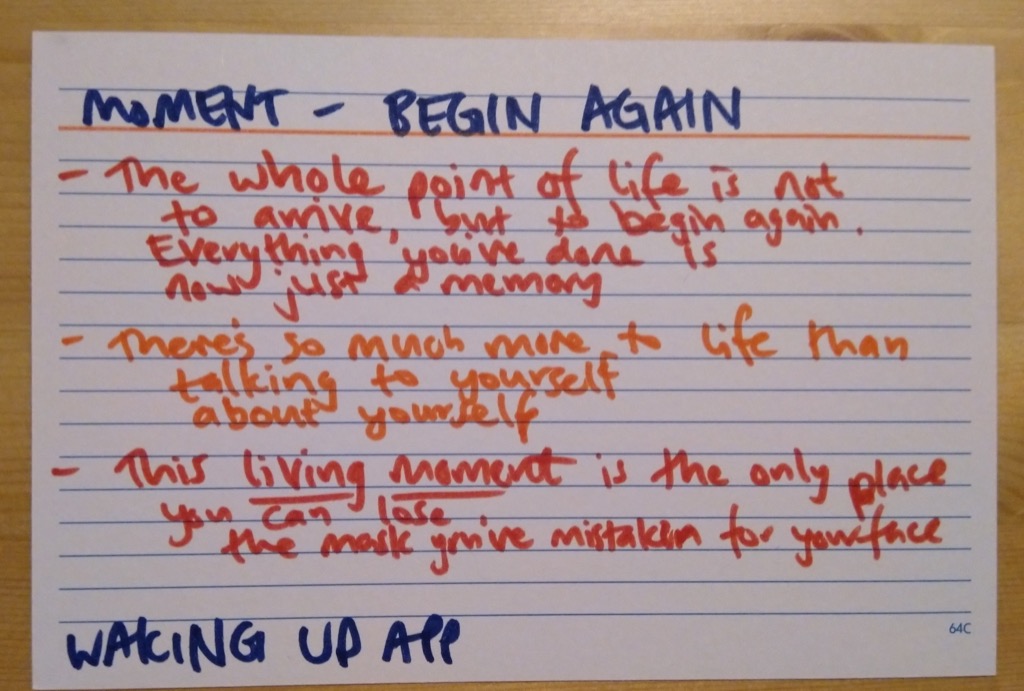 MOMENT - BEGIN AGAIN
- The whole point of life is not
to arrive, but to begin again.
Everything you've done is
now just a memory
- There's so much more to life than
talking to yourself
about yourself
- This living moment is the only place
you can lose
the mask you've mistaken for your face
64C
WAKING UP APP